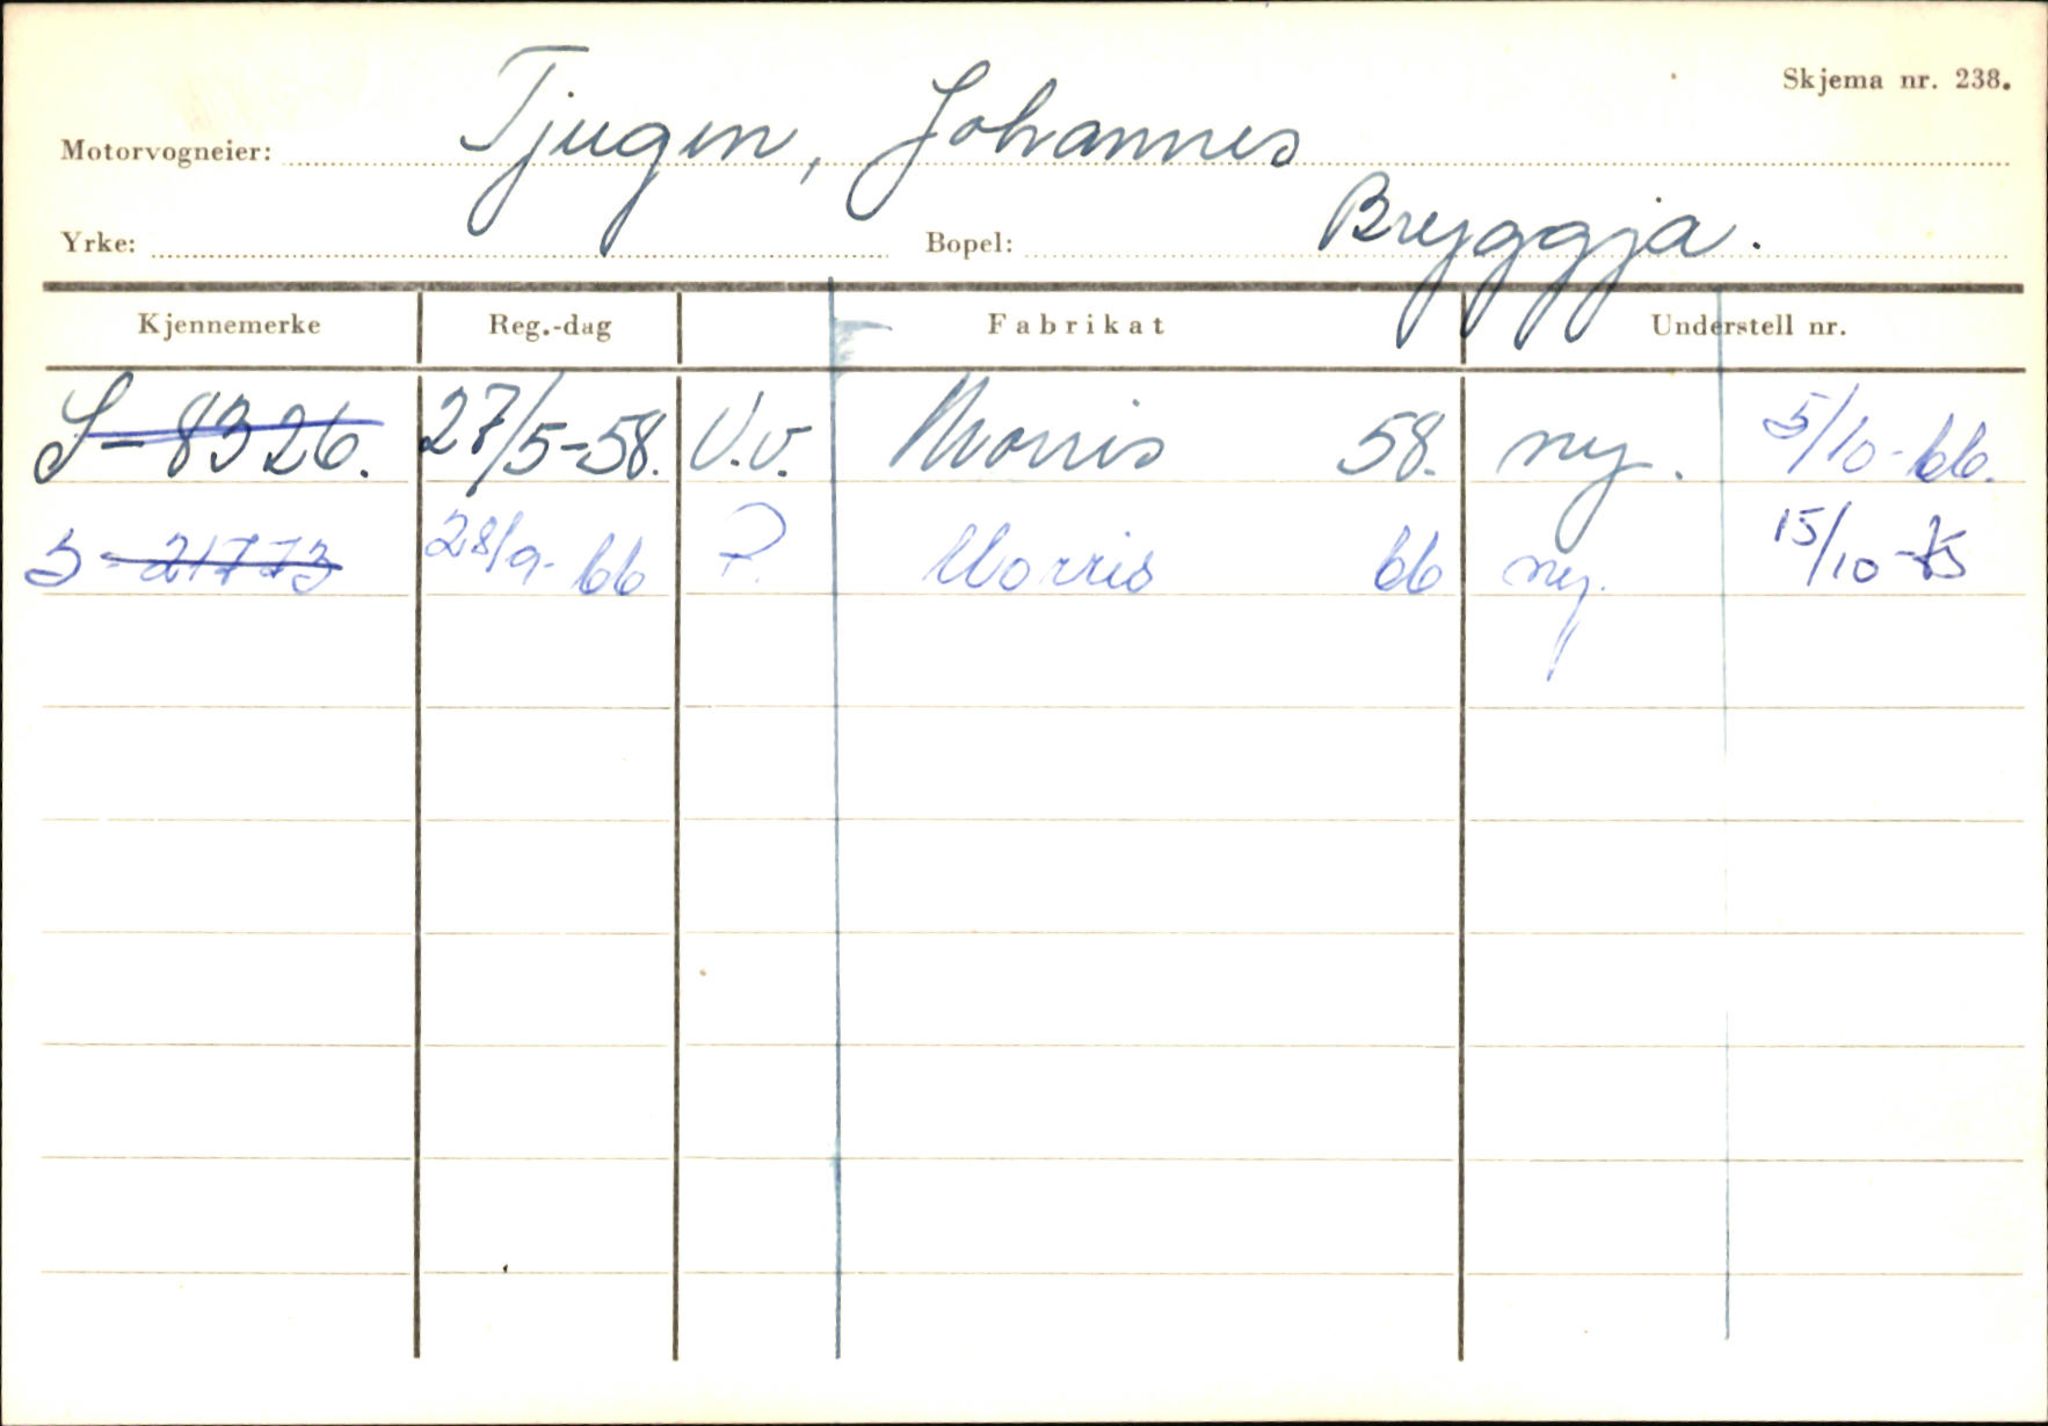 Skjema nr. 238.
Motorvogneier: Tjugen, Johannes
Yrke: Bopel: Bryggja.
Kjennemerke Reg.-dag Fabrikat Understell nr.
S-8326. 27/5-58. V.v. Morris 58. ny. 5/10-66.
S-21773 28/9-66 P. Morris 66 ny. 15/10-75